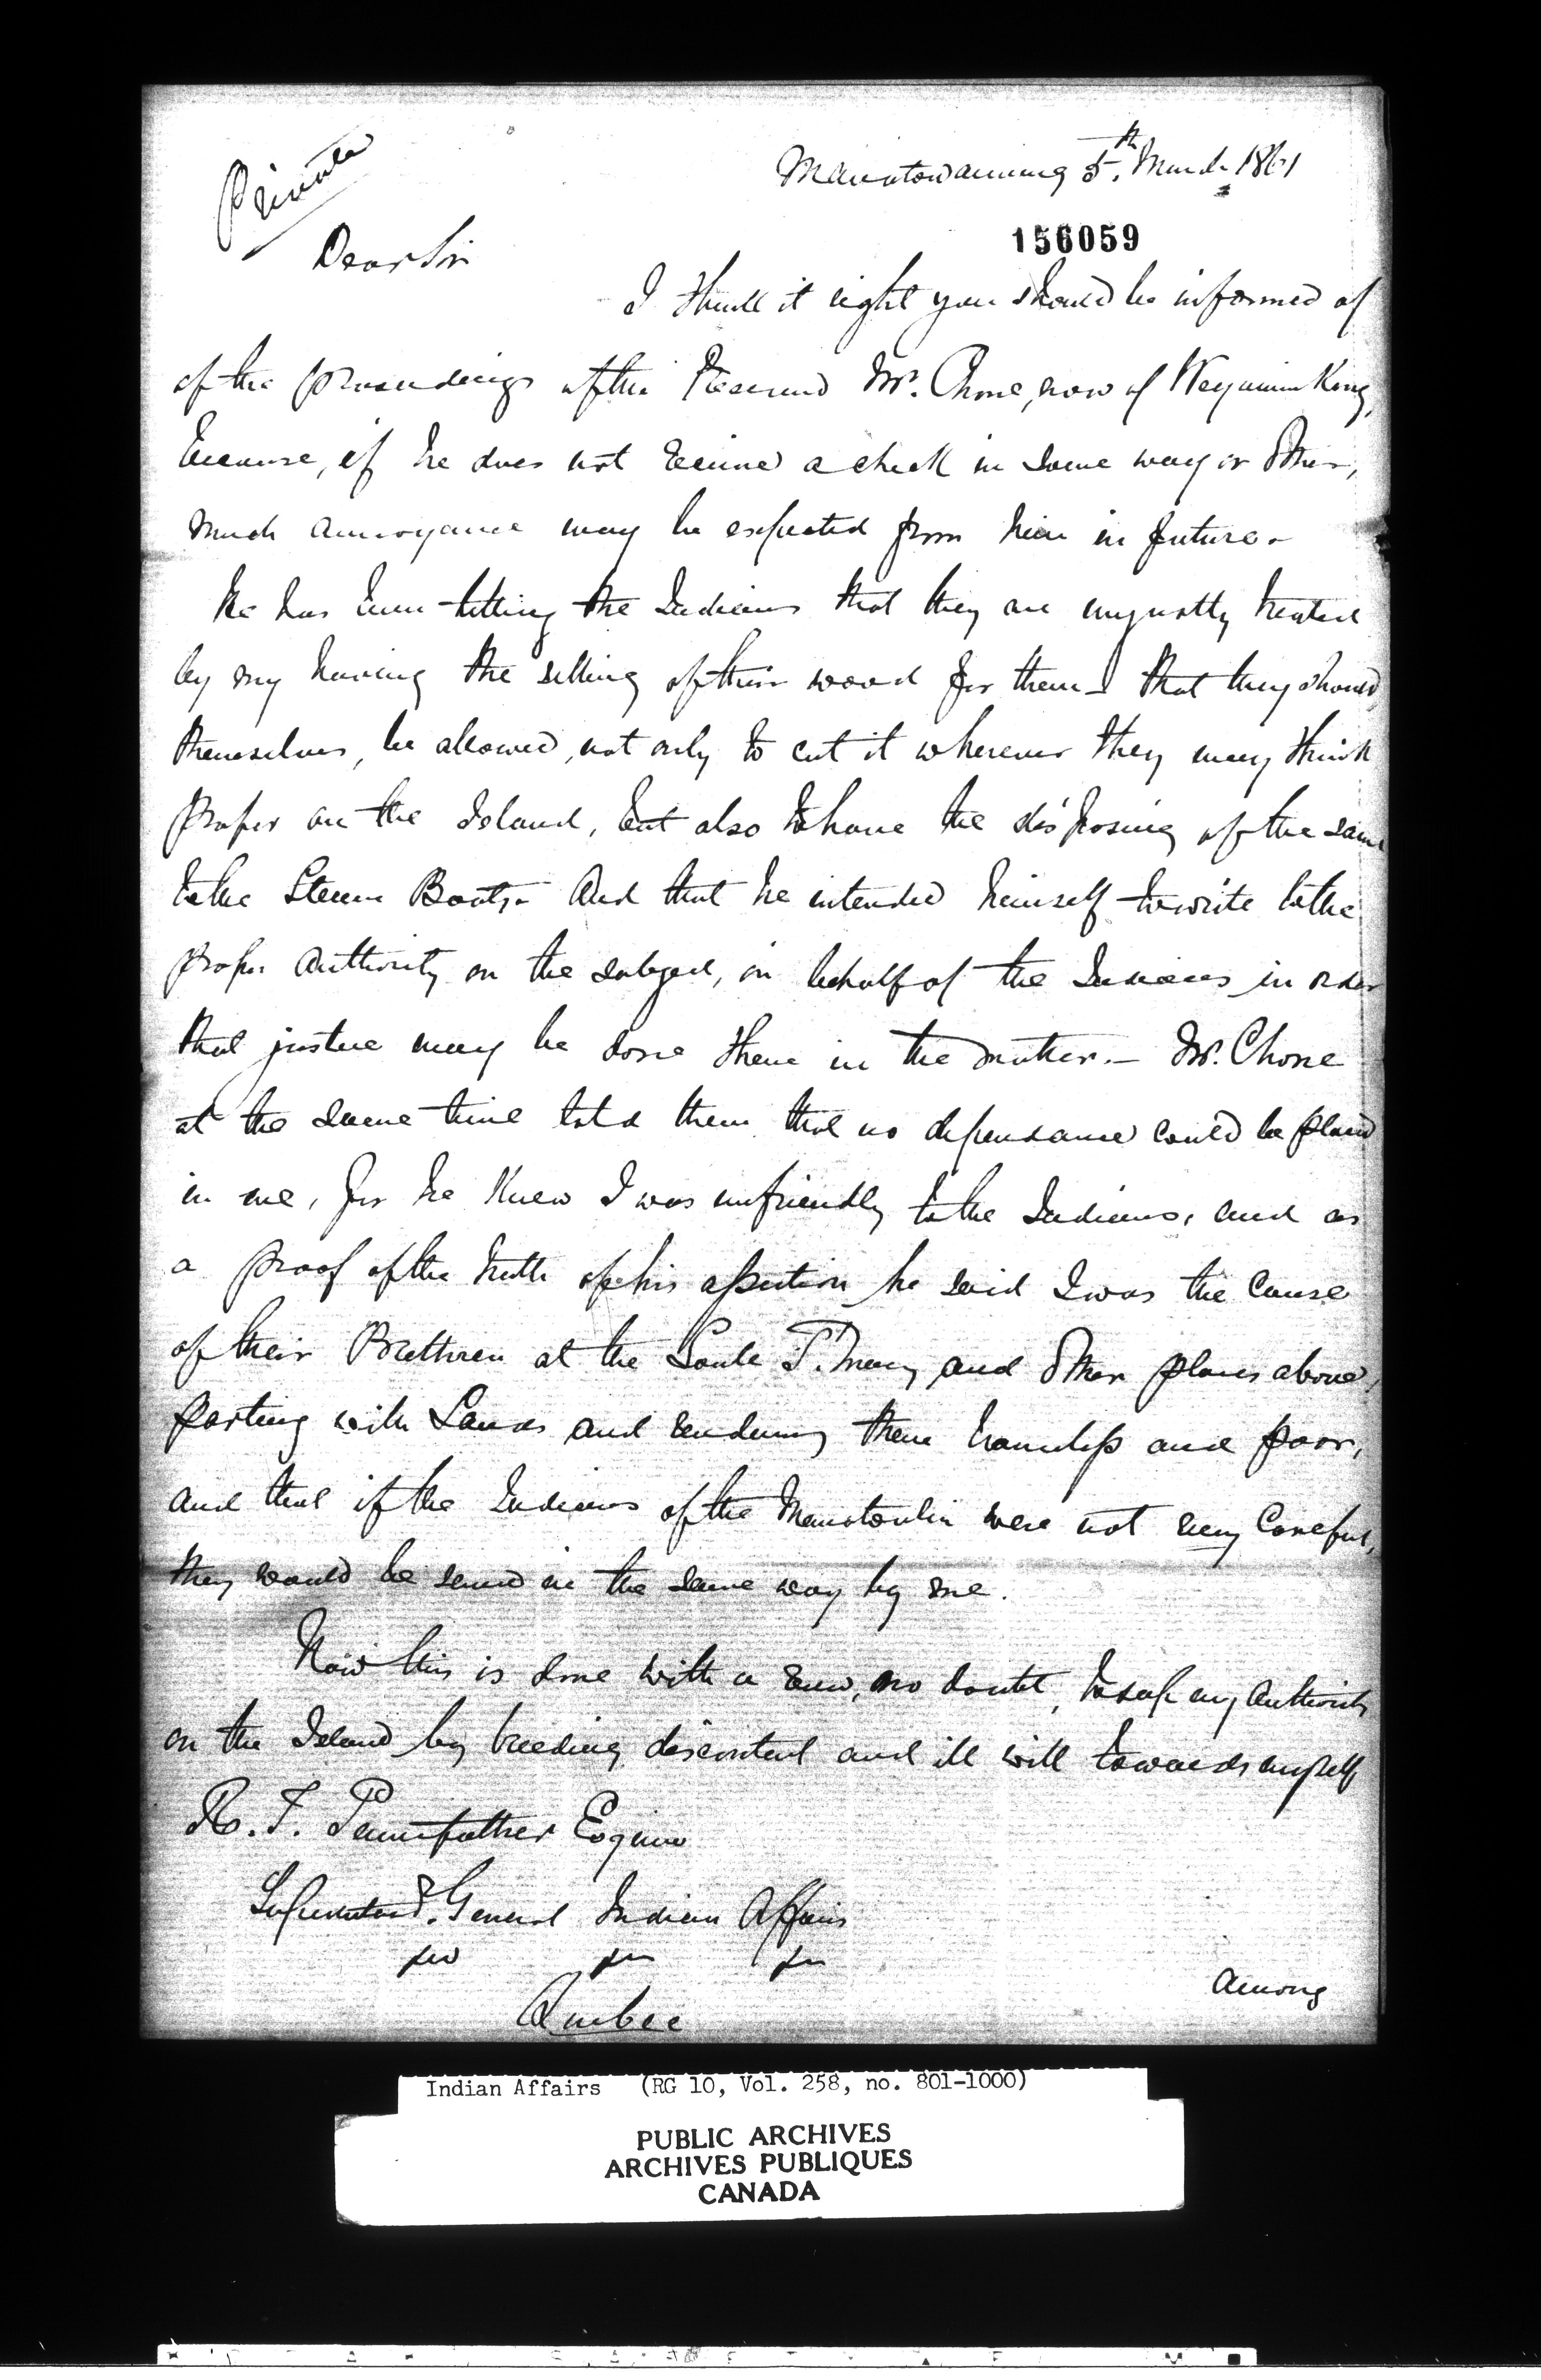 Private
Manatowaning 5th. March 1861
156059
Dear Sir
I think it right you should be informed of
of the proceedings of the Reverend Mr. Chone, now of Wequimikong,
because, if he does not receive a check in some way or other,
much annoyance may be expected from him in future -
He has been telling the Indians that they are unjustly treated
by my having the selling of their wood for them - that they should,
themselves, be allowed, not only to cut it wherever they may think
proper on the Island, but also to have the disposing of the same
to the Steam Boats - And that he intended himself to write to the
proper authority on the subject, in behalf of the Indians in order
that justice may be done them in the matter. - Mr. Chone
at the same time told them that no dependance could be placed
in me, for he knew I was unfriendly to the Indians, and as
a proof of the truth of his assertion he said I was the cause
of their Brethren at the Sault St. Mary and other places above,
parting with Lands and rendering them homeless and poor,
and that if the Indians of the Manatoulin were not very careful,
they would be served in the same way by me.
Now this is done with a view, no doubt, to sap my authority
on the Island by breeding discontent and ill will towards myself
R. T. Pennefather Esquire
Superintendt. General Indian Affairs
Quebec
among
Indian Affairs (RG 10, Vol. 258, no. 801-1000)
PUBLIC ARCHIVES
ARCHIVES PUBLIQUES
CANADA